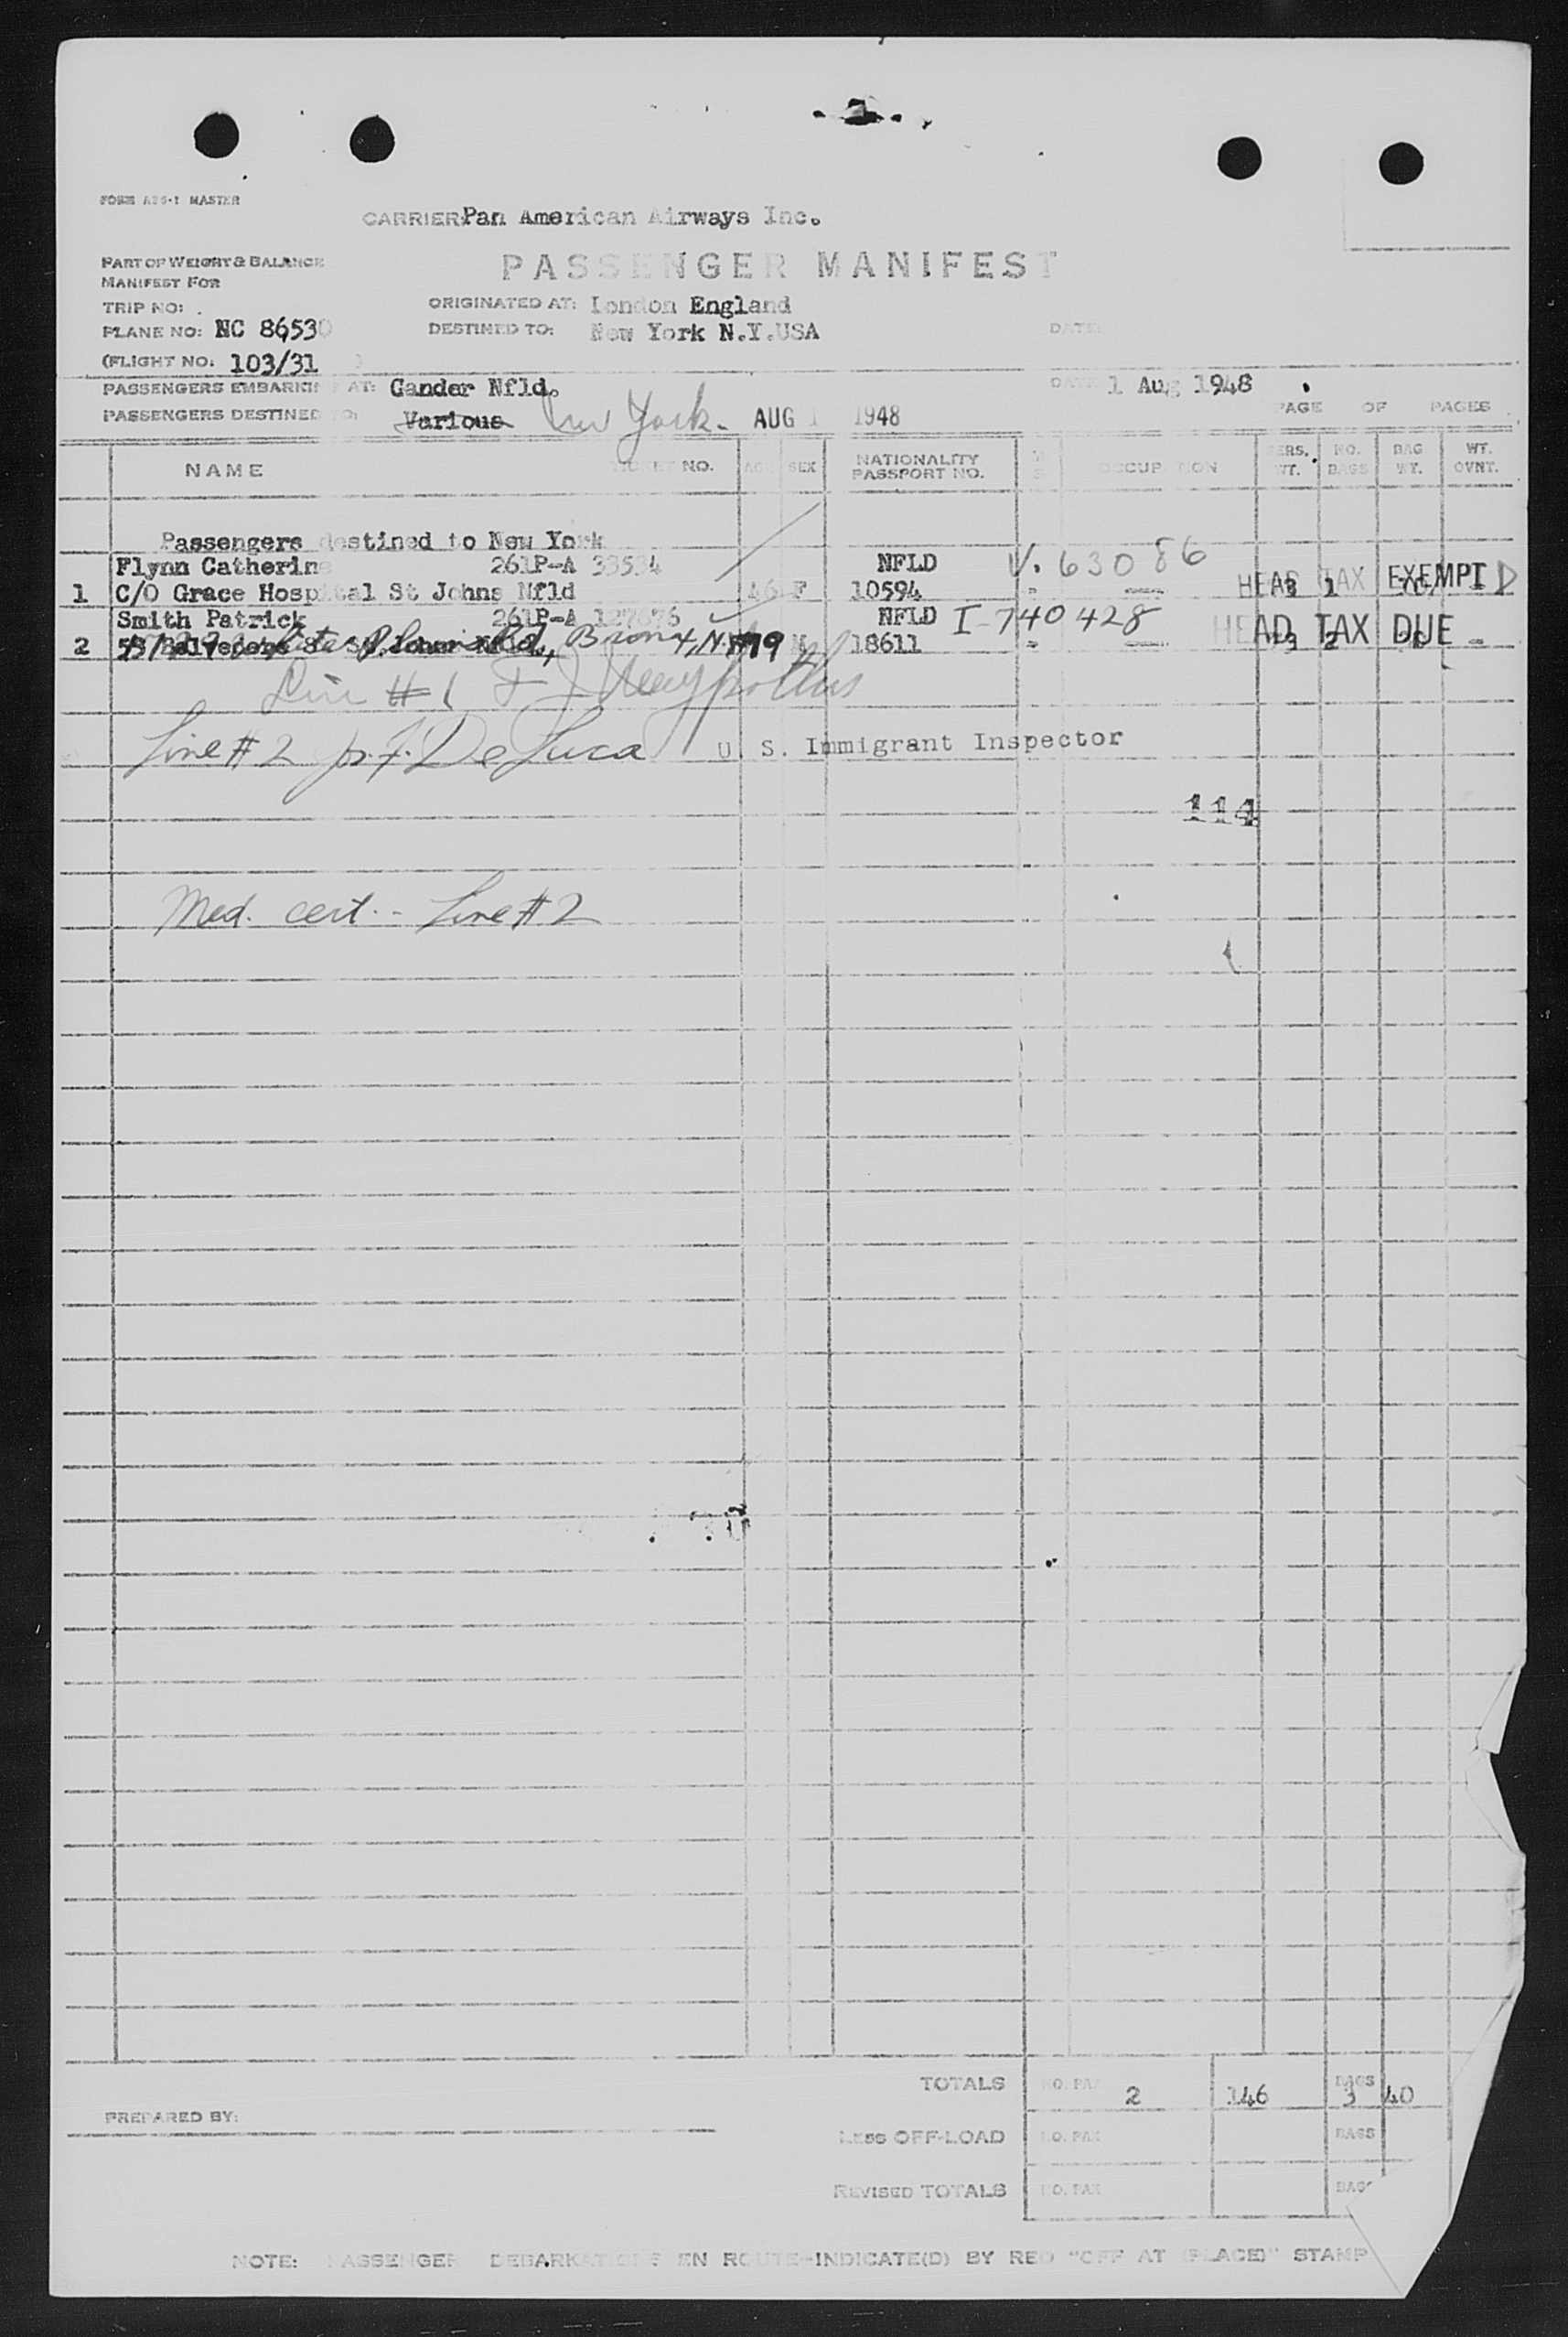 FORM A26-1 MASTER
CARRIER: Pan American Airways Inc.
PART OF WEIGHT & BALANCE
MANIFEST FOR
PASSENGER MANIFEST
TRIP NO:
ORIGINATED AT: London England
PLANE NO: NC 86530
DESTINED TO: New York N.Y.USA
DATE:
(FLIGHT NO: 103/31 )
PASSENGERS EMBARKING AT: Gander Nfld.
DATE 1 Aug 1948
PASSENGERS DESTINED TO: Various New York. AUG 1 1948
PAGE OF PAGES
NAME TICKET NO. AGE SEX NATIONALITY PASSPORT NO. OCCUPATION PERS. WT. NO. BAGS BAG WT. WT. OVNT.
Passengers destined to New York
Flynn Catherine 261P-A 33534 NFLD V. 63086
1 C/O Grace Hospital St Johns Nfld 46 F 10594 - — HEAD TAX EXEMPT D
Smith Patrick 261P-A 127676 NFLD I-740428
2 Belvedere St St. Johns Nfld, Bronx, N.Y. 19 M 18611 - — HEAD TAX DUE -
Line #1
Line #2 De Luca U. S. Immigrant Inspector
114
Med. cert. - Line #2
TOTALS NO. PAX 2 146 BAGS 3 40
PREPARED BY:
LESS OFF-LOAD NO. PAX BAGS
REVISED TOTALS NO. PAX BAGS
NOTE: PASSENGER DEBARKATIONS EN ROUTE-INDICATE(D) BY RED "OFF AT (PLACE)" STAMP